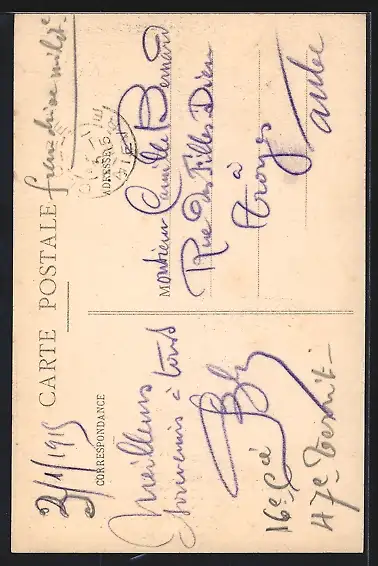 CARTE POSTALE
franchise milit.
2/1/1915
CORRESPONDANCE
ADRESSE
Meilleurs
souvenirs à tous
16e Cie
47e Territ.
Monsieur Camille Bernard
Rue des Filles Dieu
à
Troyes
Aube